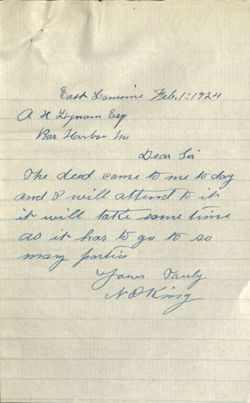 East Lamoine Feb. 1 - 1924
A H Lynam Esq
Bar Harbor Me
Dear Sir
The deed came to me to day
and I will attend to it
it will take some time
as it has to go to so
many parties
Yours Truly
N D King